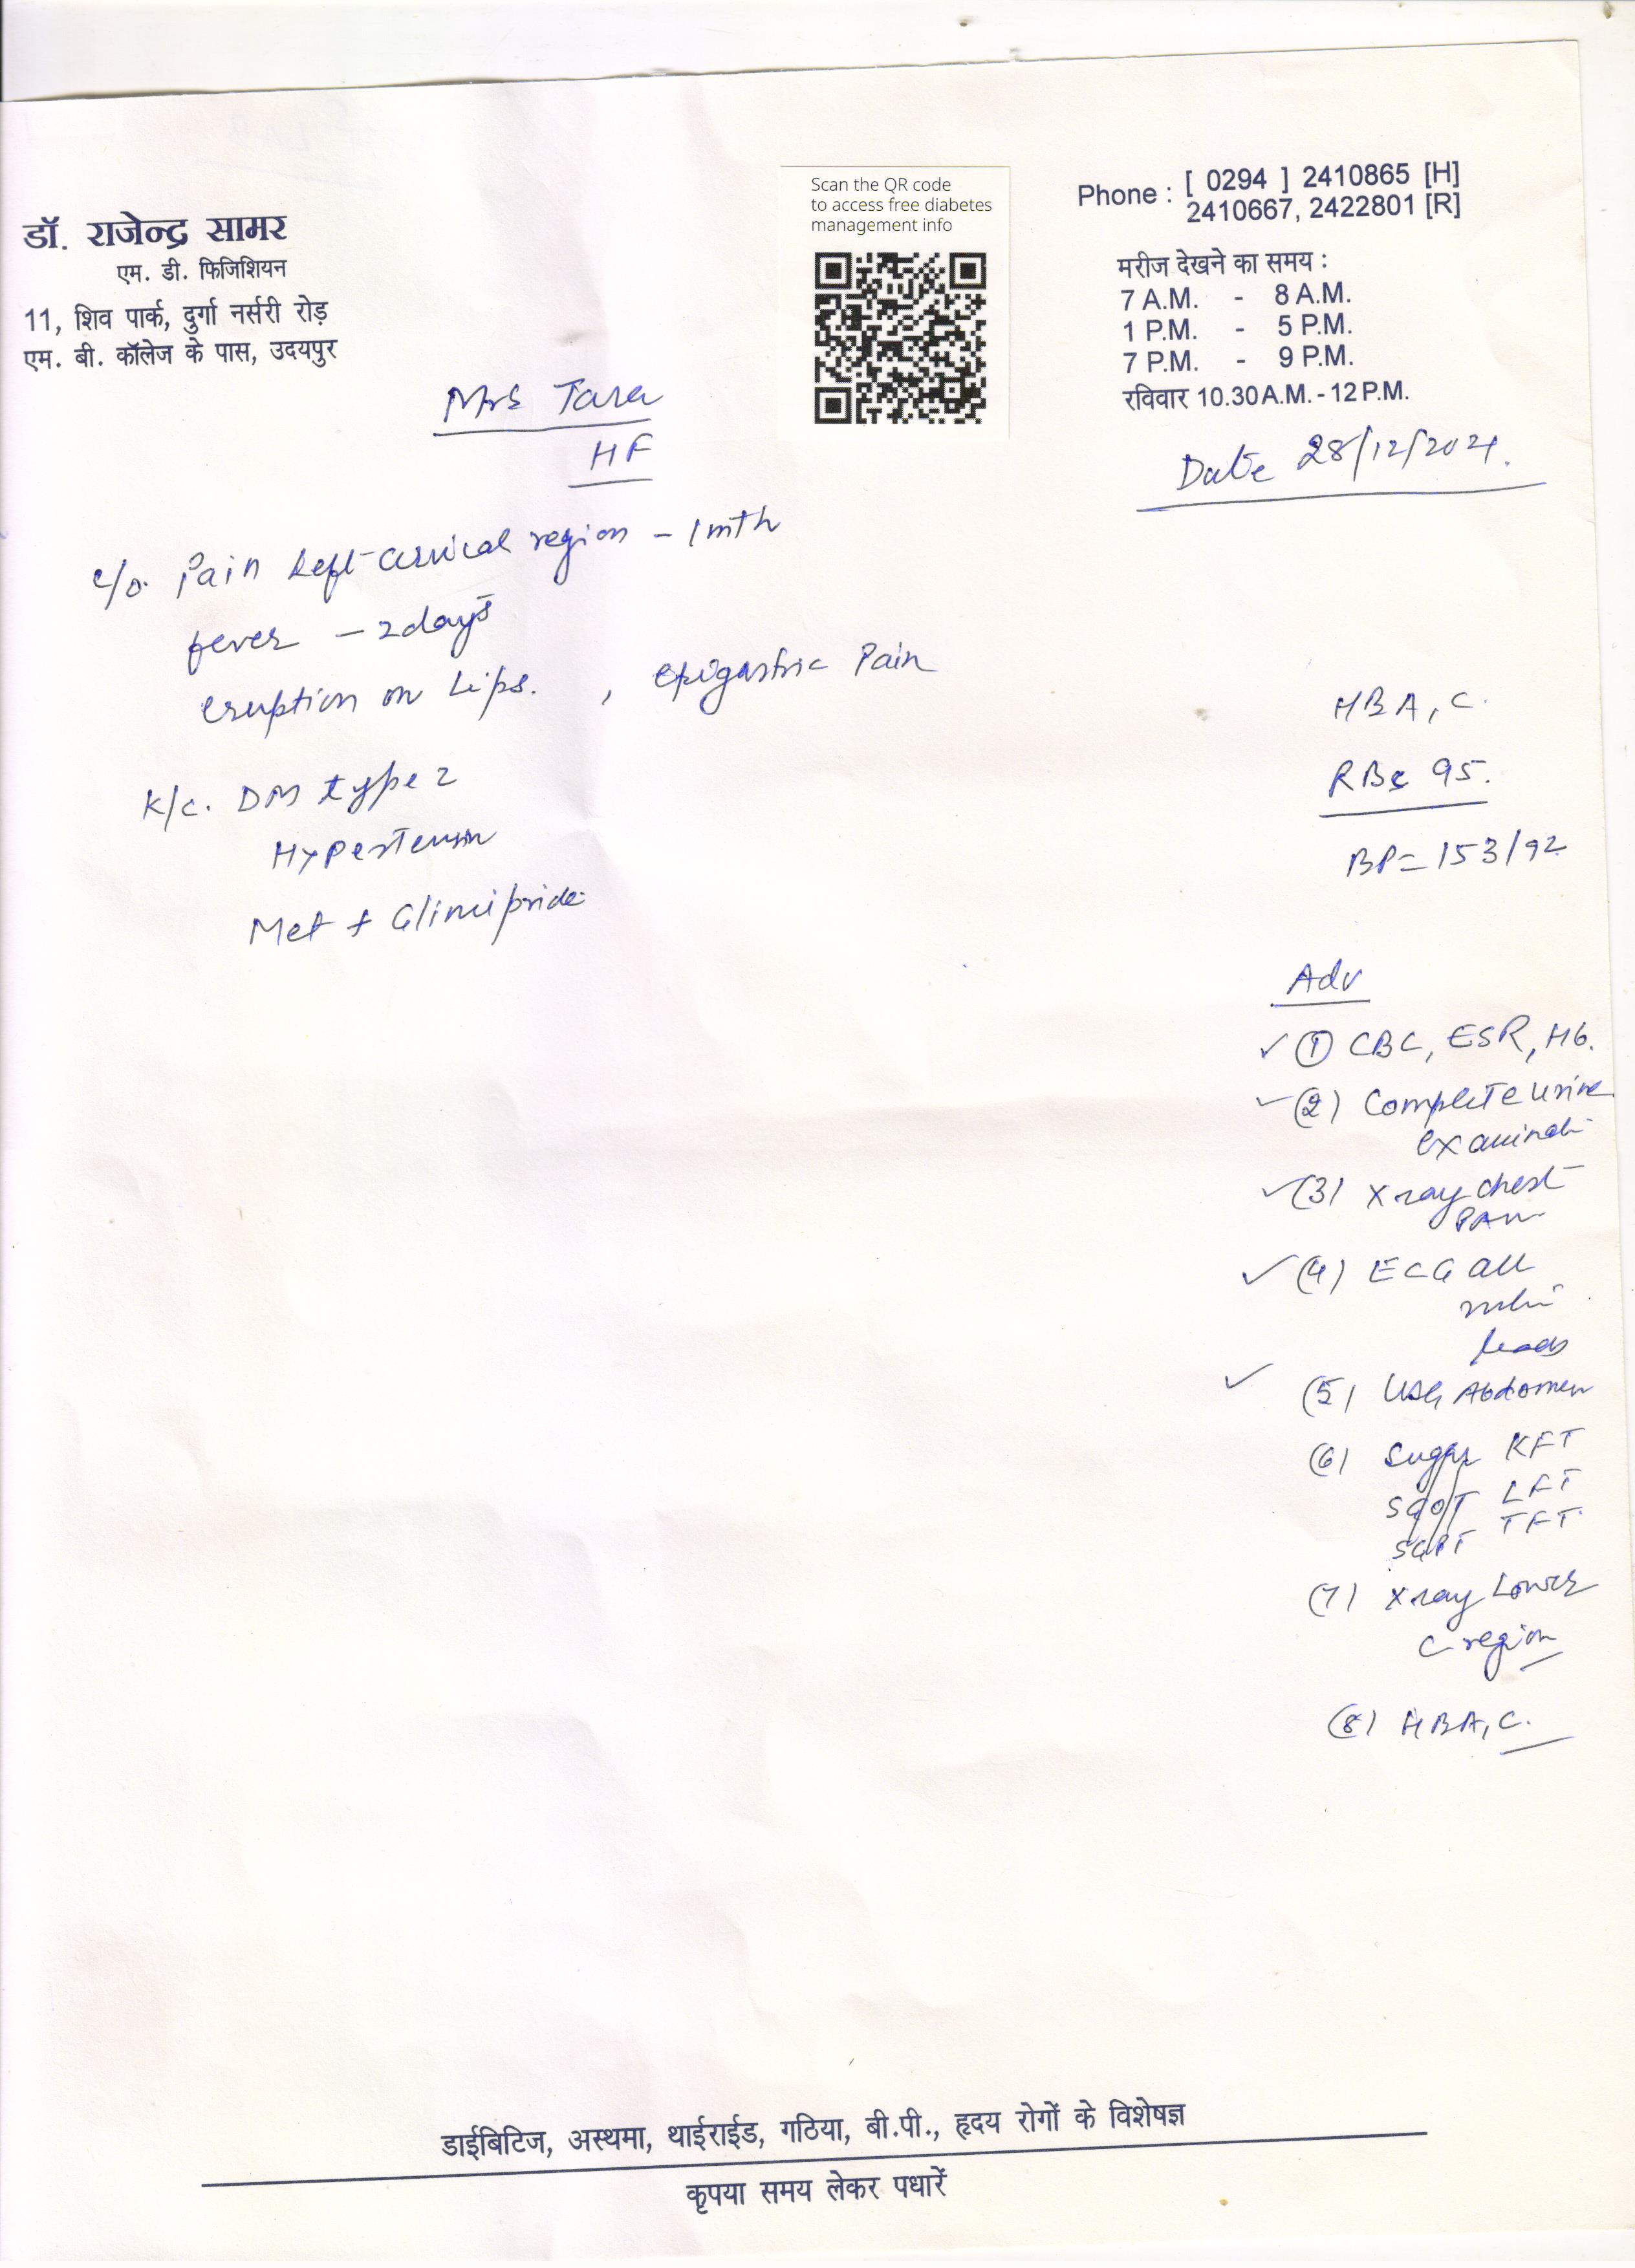 डॉ. राजेन्द्र सामर
एम. डी. फिजिशियन
11, शिव पार्क, दुर्गा नर्सरी रोड़
एम. बी. कॉलेज के पास, उदयपुर
Scan the QR code
to access free diabetes
management info
Phone : [ 0294 ] 2410865 [H]
2410667, 2422801 [R]
मरीज देखने का समय :
7 A.M. - 8 A.M.
1 P.M. - 5 P.M.
7 P.M. - 9 P.M.
रविवार 10.30 A.M. - 12 P.M.
Mrs Tara
HF
Date 28/12/2021.
c/o. Pain Left cervical region - 1 mth
fever - 2 days
eruption on Lips. , epigastric Pain
K/c. DM type 2
Hypertension
Met + Glimipride
HBA1C.
RBS 95.
BP = 153/92
Adv
✓ (1) CBC, ESR, Hb.
✓ (2) Complete urine
examinati
✓ (3) X ray chest
✓ (4) ECG all
leads
✓ (5) USG Abdomen
(6) Sugar KFT
SGOT LFT
SGPT TFT
(7) X ray Lower
C region
(8) HBA1C.
डाईबिटिज, अस्थमा, थाईराईड, गठिया, बी.पी., हृदय रोगों के विशेषज्ञ
कृपया समय लेकर पधारें